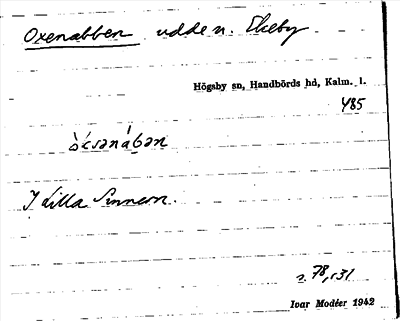 Oxenabben udde n. Ekeby.
Högsby sn, Handbörds hd, Kalm. l.
485
I Lilla Sinnern.
s. 78, 131
Ivar Modéer 1942